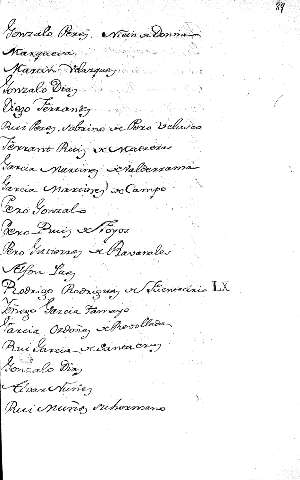 89
Gonzalo Perez, Niño de Donna
Marquesa
Martin Velazquez
Gonzalo Diaz
Diego Ferrandez
Ruiz Perez sobrino de Pero Velasco
Ferrant Ruiz de
Garcia Martinez de Valderrama
Garcia Martinez de Campo
Pero Gonzalo
Pero Ruiz de Hoyos
Pero Gutierrez de Ravanales
Alfon
Rodrigo Rodriguez de LX
Diego Garcia Tamayo
Garcia Ordoñez de
Rui Garcia de Santa Cruz
Gonzalo Diaz
Alvar Nuñez
Rui Muñoz